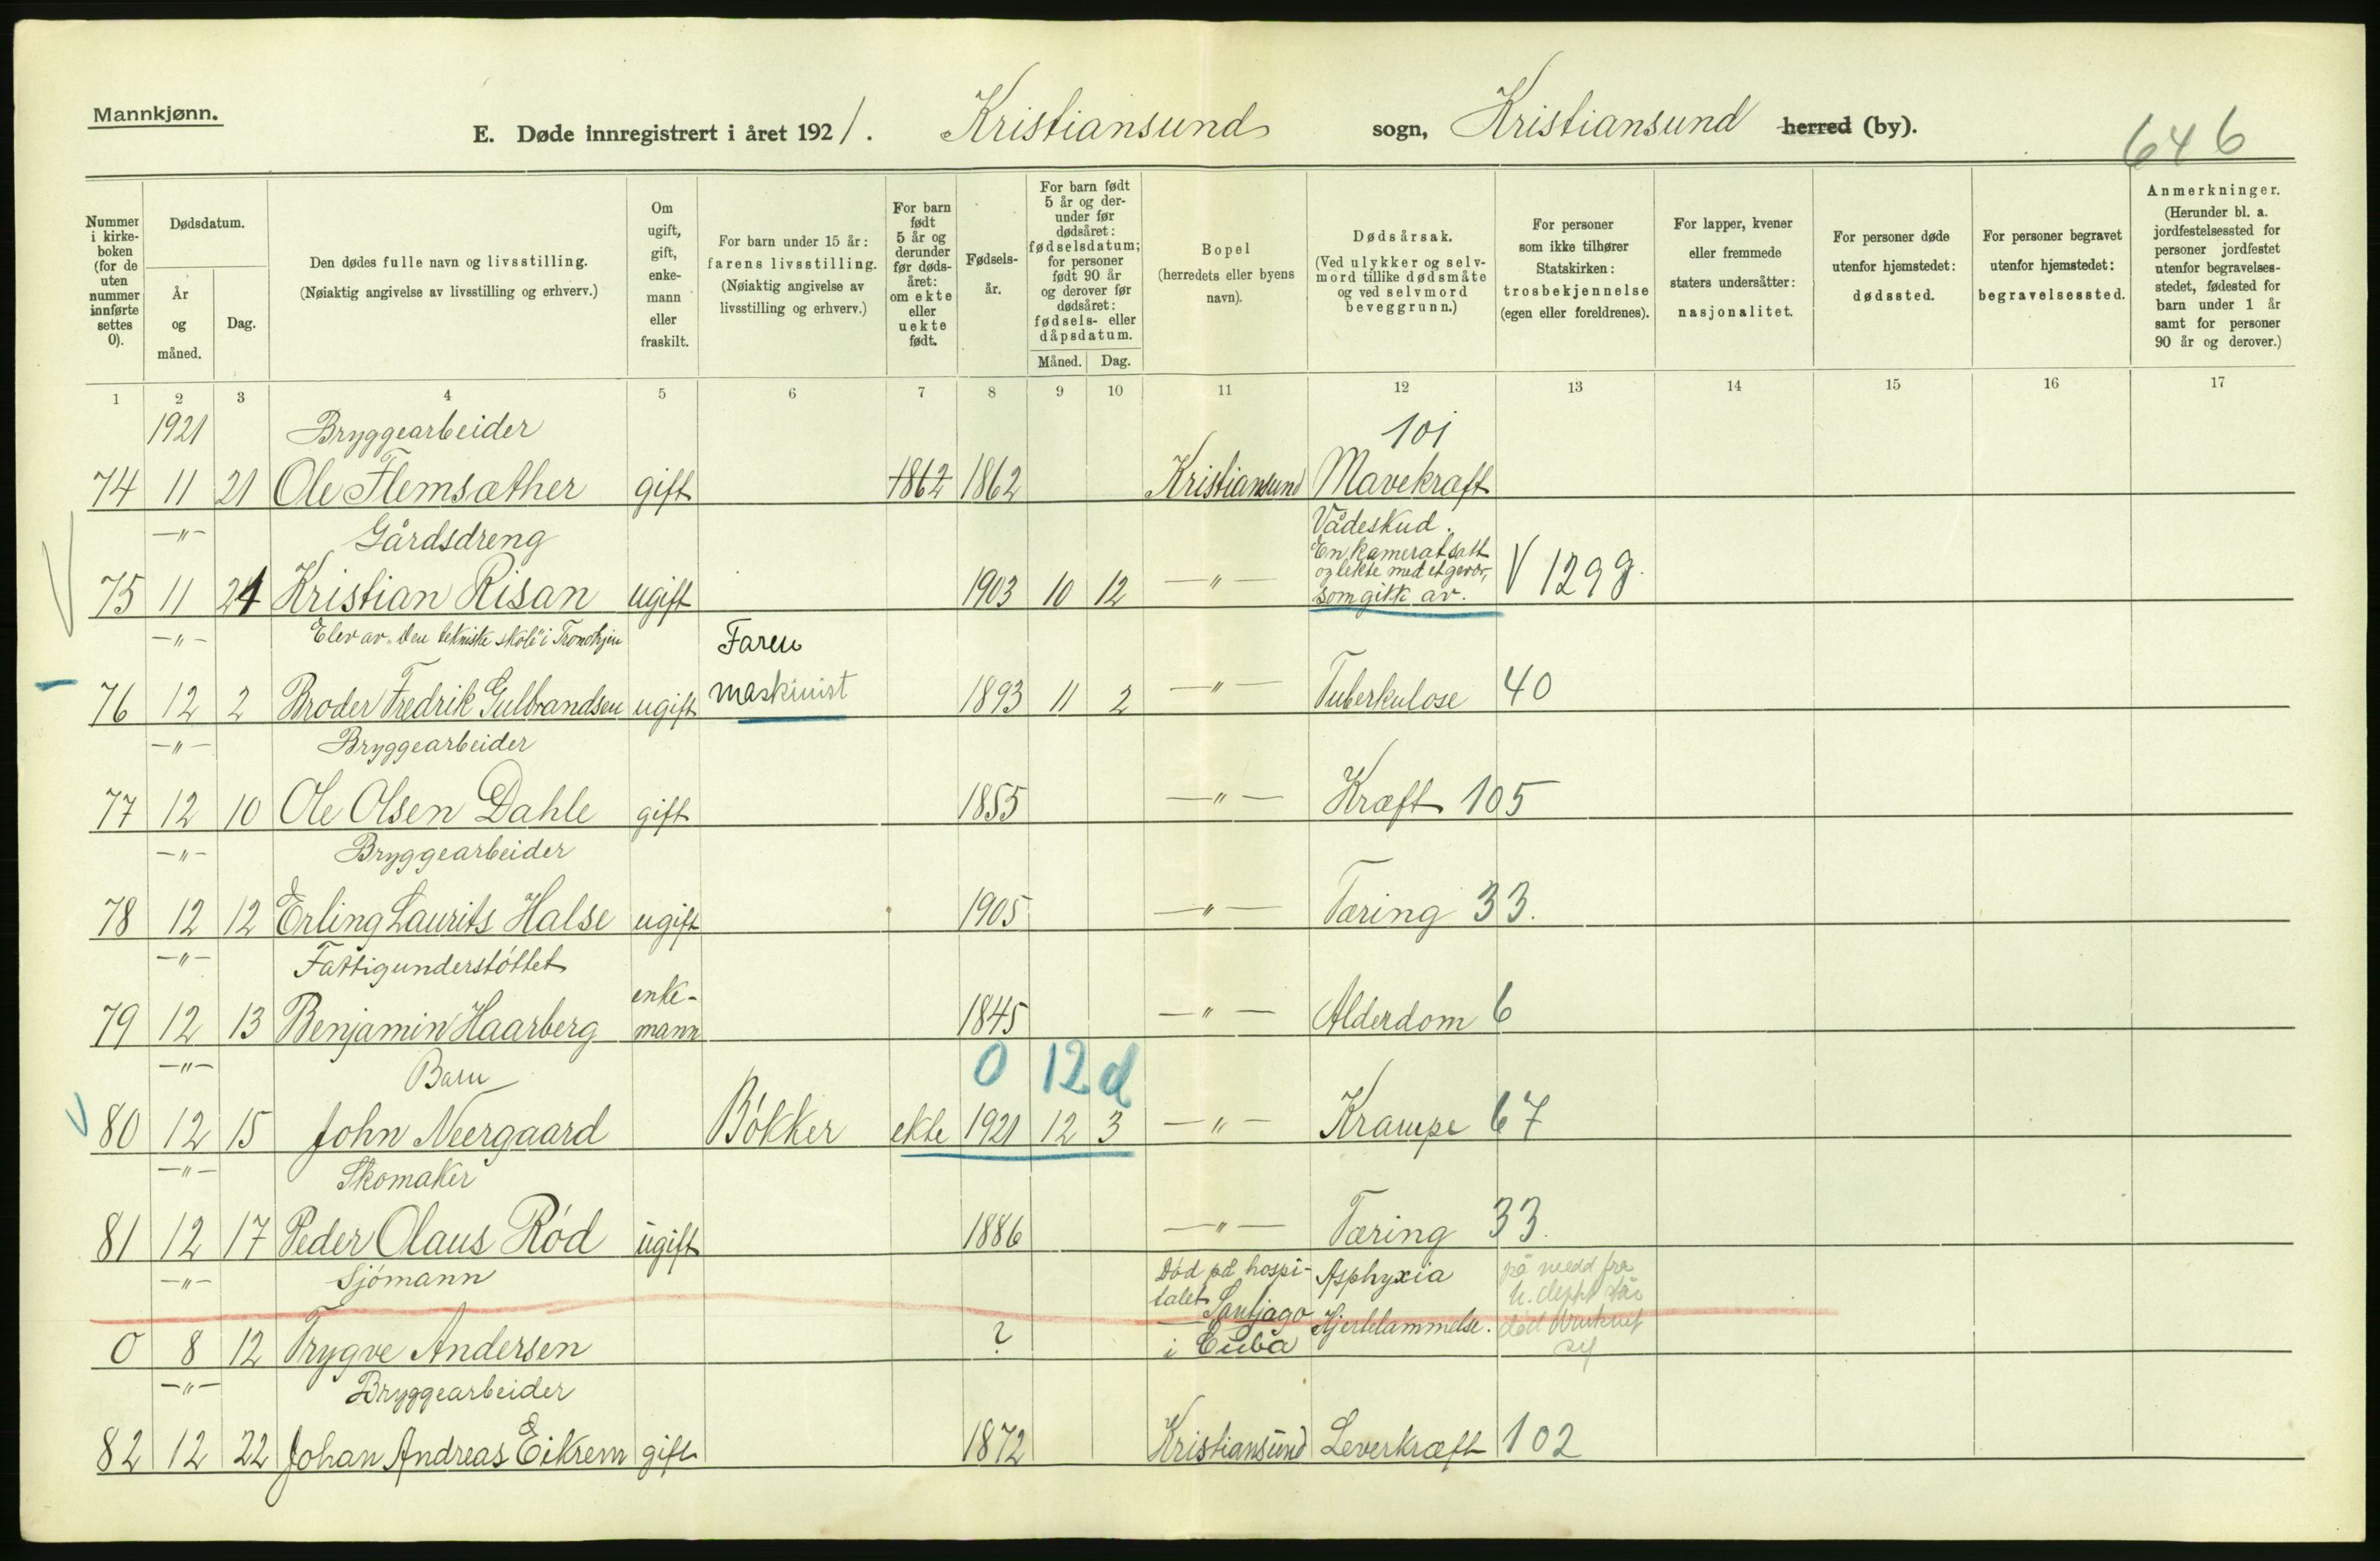 Mannkjønn.
E. Døde innregistrert i året 1921. Kristiansund sogn, Kristiansund herred (by).
646
Nummer i kirkeboken (for de uten nummer innførte settes 0).
Dødsdatum.
År og måned.
Dag.
Den dødes fulle navn og livsstilling.
(Nøiaktig angivelse av livsstilling og erhverv.)
Om ugift, gift, enkemann eller fraskilt.
For barn under 15 år:
farens livsstilling.
(Nøiaktig angivelse av livsstilling og erhverv.)
For barn født 5 år og derunder før dødsåret: om ekte eller uekte født.
Fødselsår.
For barn født 5 år og derunder før dødsåret: fødselsdatum; for personer født 90 år og derover før dødsåret: fødsels- eller dåpsdatum.
Måned. Dag.
Bopel
(herredets eller byens navn).
Dødsårsak.
(Ved ulykker og selvmord tillike dødsmåte og ved selvmord beveggrunn.)
For personer som ikke tilhører Statskirken: trosbekjennelse (egen eller foreldrenes).
For lapper, kvener eller fremmede staters undersåtter: nasjonalitet.
For personer døde utenfor hjemstedet: dødssted.
For personer begravet utenfor hjemstedet: begravelsessted.
Anmerkninger.
(Herunder bl. a. jordfestelsessted for personer jordfestet utenfor begravelsesstedet, fødested for barn under 1 år samt for personer 90 år og derover.)
1 2 3 4 5 6 7 8 9 10 11 12 13 14 15 16 17
1921 Bryggearbeider 101
74 11 21 Ole Flemsæther gift 1862 1862 Kristiansund Mavekræft
—"— Gårdsdreng Vådeskud.
En kamerat satt
og lekte med et gevær,
75 11 24 Kristian Risan ugift 1903 10 12 —"— som gikk av. V 129 g.
—"— Elev av "Den tekniske skole" i Trondhjem Faren
76 12 2 Broder Fredrik Gulbrandsen ugift maskinist 1893 11 2 —"— Tuberkulose 40
—"— Bryggearbeider
77 12 10 Ole Olsen Dahle gift 1855 —"— Kræft 105
—"— Bryggearbeider
78 12 12 Erling Laurits Halse ugift 1905 —"— Tæring 33.
—"— Fattigunderstöttet
79 12 13 Benjamin Haarberg enke-
mann 1845 —"— Alderdom 6
—"— Barn 0 12 d
80 12 15 John Neergaard Bökker ekte 1921 12 3 —"— Krampe 67
—"— Skomaker
81 12 17 Peder Olaus Röd ugift 1886 —"— Tæring 33.
—"— Sjömann Död på hospi- Asphyxia på medd fra
talet Santjago Hjertelammelse.
0 8 12 Trygve Andersen ? i Cuba
—"— Bryggearbeider
82 12 22 Johan Andreas Eikrem gift 1872 Kristiansund Leverkræft 102